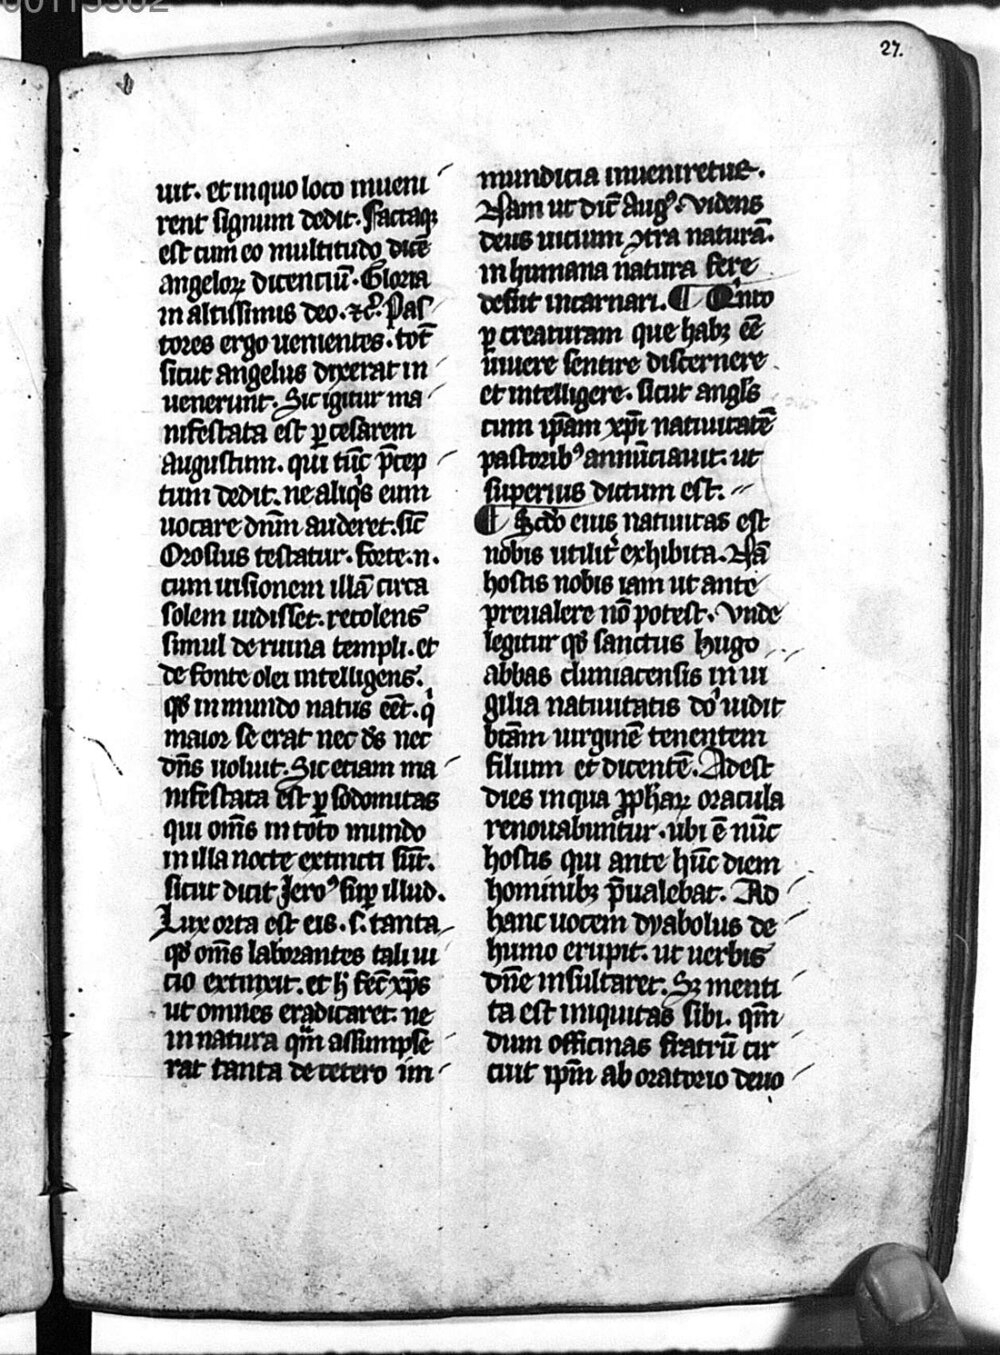 00115502
27.
uit. et in quo loco inueni
rent signum dedit. Factaqꝫ
est cum eo multitudo dicē
angeloꝝ dicenciū. Gloria
in altissimis deo. ⁊c̄. Pas
tores ergo uenientes. tot̄
sicut angelus dixerat in
uenerunt. Sic igitur ma
nifestata est ꝑ cesarem
augustum. qui tūc p̄cep
tum dedit. ne aliq̄s eum
uocare dnm̄ auderet. sic̄
Orosius testatur. forte .n.
cum uisionem illā circa
solem uidisset. recolens
simul de ruina templi. et
de fonte olei intelligens.
qd̄ in mundo natus eēt. qͥ
maior se erat nec ds̄ nec
dn̄s uoluit. Sic etiam ma
nifestata est ꝑ sodomitas
qui om̄s in toto mundo
in illa nocte extincti sūt.
sicut dicit Jeroꝰ sup̄ illud.
Lux orta est eis. s. tanta
qd̄ om̄s laborantes tali ui
cio extinxit. et ħ fec̄ xp̄s
ut omnes eradicaret. ne
in natura qm̄ assumpse
rat tanta de cetero im
mundicia inueniretur.
Nam ut dic̄ Augꝰ. videns
deus uicium ꝯtra naturā.
in humana natura fere
desiit incarnari. ¶ Qͥnto
ꝑ creaturam que habꝫ eē
uiuere sentire discernere
et intelligere. sicut angl̄s
cum ip̄am xp̄i natiuitatē
pastoribꝰ annūciauit. ut
superius dictum est.
¶ Scd̄o eius natiuitas est
nobis utilit̄ exhibita. Nā
hostis nobis iam ut ante
preualere nō potest. Vnde
legitur qd̄ sanctus hugo
abbas cluniacensis in ui
gilia natiuitatis do uidit
btām uirginē tenentem
filium et dicentē. Adest
dies in qua ꝓphaꝝ oracula
renouabuntur. ubi ē nūc
hostis qui ante hūc diem
hominibꝫ p̄ualebat. Ad
hanc uocem dyabolus de
humo erupit. ut uerbis
dn̄e insultaret. Sꝫ menti
ta est iniquitas sibi. qm̄
dum officinas fratrū cir
cuit ip̄m ab oratorio deuo